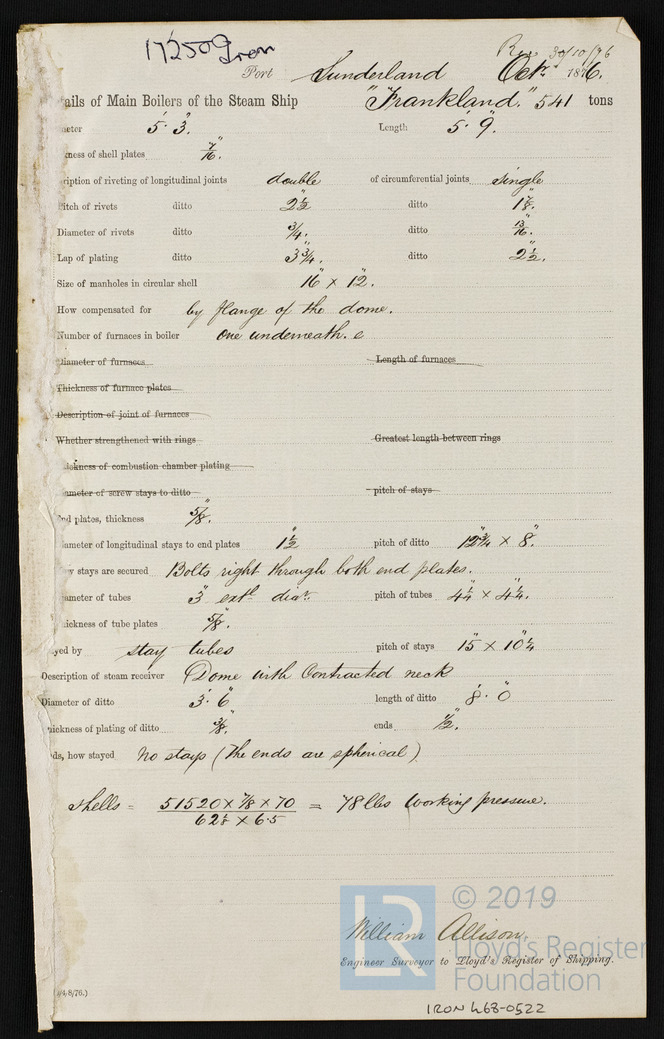 17250 Iron
Rec 30/10/76
Port Sunderland Octr 1876.
ails of Main Boilers of the Steam Ship "Frankland." 541 tons
meter 5' 3". Length 5' 9".
kness of shell plates 7/16".
ription of riveting of longitudinal joints double of circumferential joints single
Pitch of rivets ditto 2 1/2" ditto 1 7/8".
Diameter of rivets ditto 3/4". ditto 13/16".
Lap of plating ditto 3 3/4". ditto 2 1/2".
Size of manholes in circular shell 16" x 12".
How compensated for by flange of the dome.
Number of furnaces in boiler one underneath.
Diameter of furnaces Length of furnaces
Thickness of furnace plates
Description of joint of furnaces
Whether strengthened with rings Greatest length between rings
ickness of combustion chamber plating
ameter of screw stays to ditto pitch of stays
nd plates, thickness 5/8".
iameter of longitudinal stays to end plates 1 1/2" pitch of ditto 12 3/4" x 8".
w stays are secured Bolts right through both end plates.
ameter of tubes 3" extl diar. pitch of tubes 4 1/4" x 4 1/4".
ickness of tube plates 5/8".
yed by stay tubes pitch of stays 15" x 10 1/4"
Description of steam receiver Dome with Contracted neck
Diameter of ditto 3' 6" length of ditto 8' 0"
hickness of plating of ditto 3/8". ends 1/2".
ds, how stayed No stays (the ends are spherical)
Shells = 51520 x 7/8 x 70 = 78 lbs working pressure.
x 6.5
© 2019
LR
William Allison.
Lloyd's Register
Engineer Surveyor to Lloyd's Register of Shipping.
Foundation
/4/8/76.)
IRON 468-0522